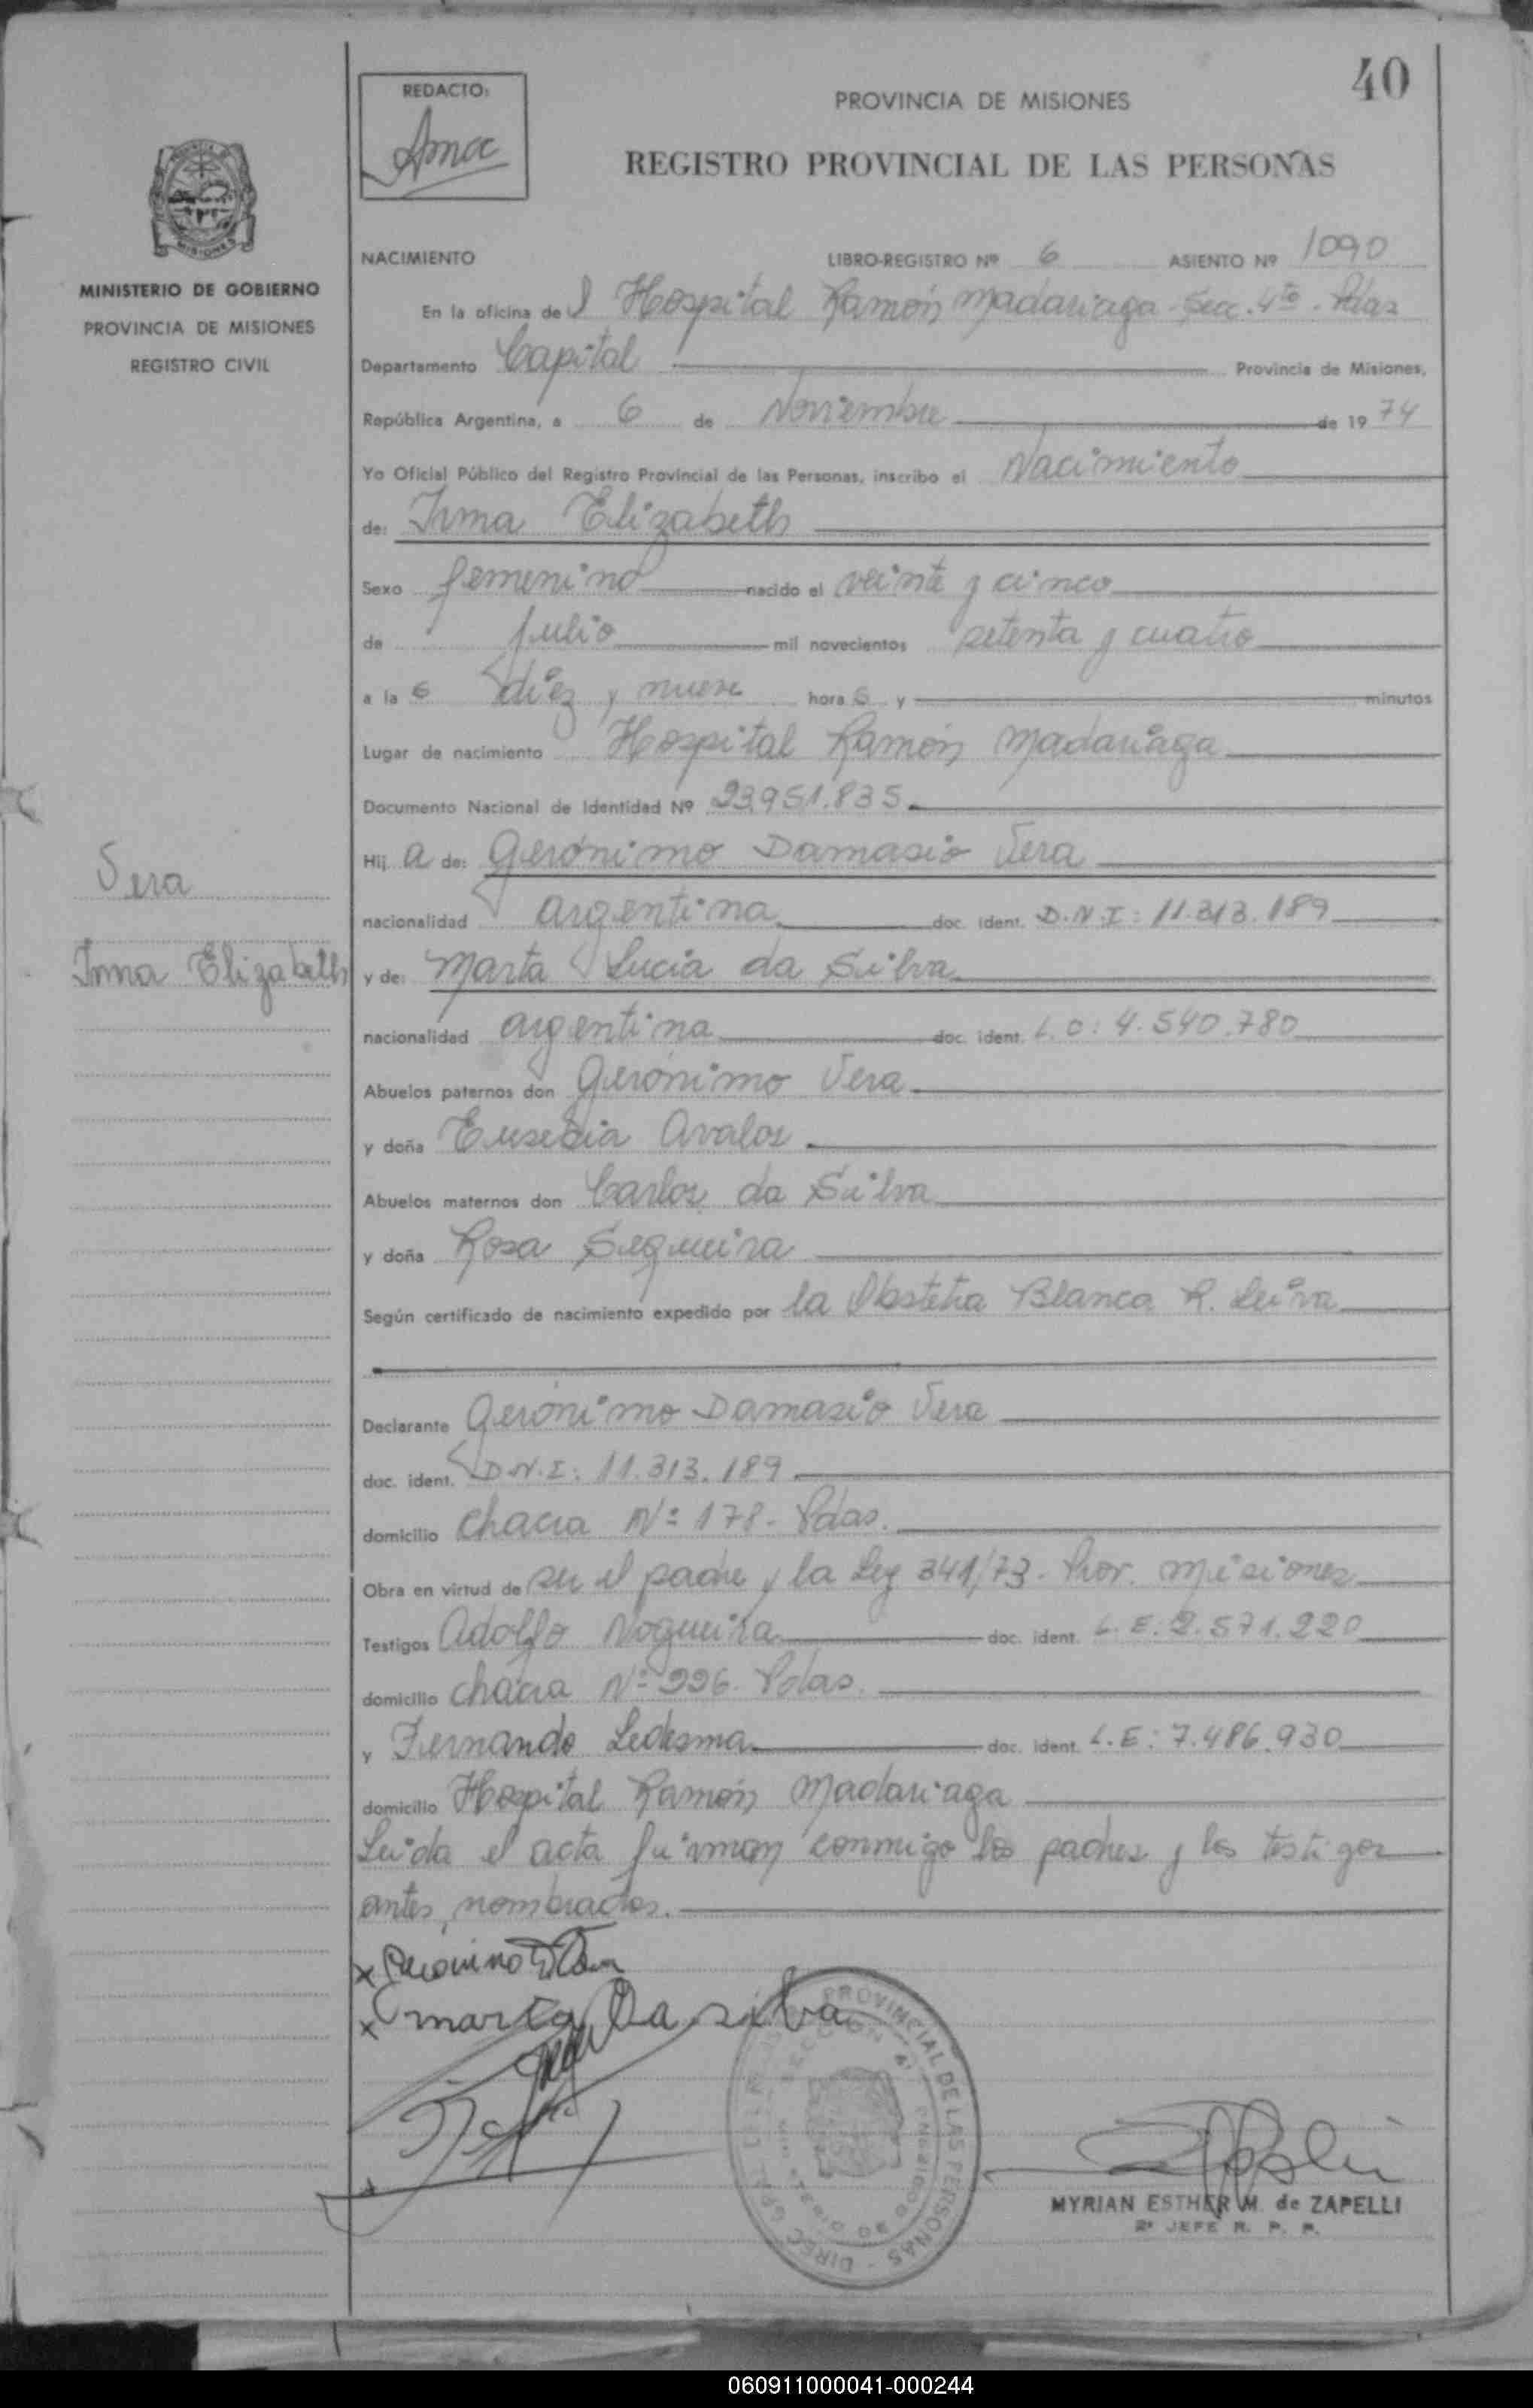 40
REDACTO:
PROVINCIA DE MISIONES
REGISTRO PROVINCIAL DE LAS PERSONAS
MISIONES
MINISTERIO DE GOBIERNO
PROVINCIA DE MISIONES
REGISTRO CIVIL
NACIMIENTO LIBRO-REGISTRO Nº 6 ASIENTO Nº 1090
En la oficina del Hospital Ramón Madariaga - Secc. 4ta - Pdas
Departamento Capital Provincia de Misiones,
República Argentina, a 6 de Noviembre de 1974
Yo Oficial Público del Registro Provincial de las Personas, inscribo el Nacimiento
de: Irma Elizabeth
Sexo femenino nacido el veinte y cinco
de Julio mil novecientos setenta y cuatro
a las diez y nueve horas y minutos
Lugar de nacimiento Hospital Ramón Madariaga
Documento Nacional de Identidad Nº 23.951.835.
Hija de: Gerónimo Damasio Vera
nacionalidad argentina doc. ident. D.N.I: 11.313.189
Vera
Irma Elizabeth
y de: Marta Lucia da Silva
nacionalidad argentina doc. ident. L.C: 4.540.780
Abuelos paternos don Gerónimo Vera
y doña Eusebia Avalos
Abuelos maternos don Carlos da Silva
y doña Rosa Segueira
Según certificado de nacimiento expedido por la Obstetra Blanca R. Leiva
Declarante Gerónimo Damasio Vera
doc. ident. D.N.I: 11.313.189
domicilio Chacra Nº 178- Pdas.
Obra en virtud de ser el padre y la Ley 341/73- Prov. Misiones
Testigos Adolfo Nogueira doc. ident. L.E: 2.571.220
domicilio Chacra Nº 226- Pdas.
y Fernando Ledesma doc. ident. L.E: 7.486.930
domicilio Hospital Ramón Madariaga
Leida el acta firman conmigo los padres y los testigos
antes nombrados.
x Geronimo D
x marta Da silva
DIREC. GRAL. PROVINCIAL DE LAS PERSONAS
MYRIAN ESTHER M. de ZAPELLI
2º JEFE R. P. P.
060911000041-000244